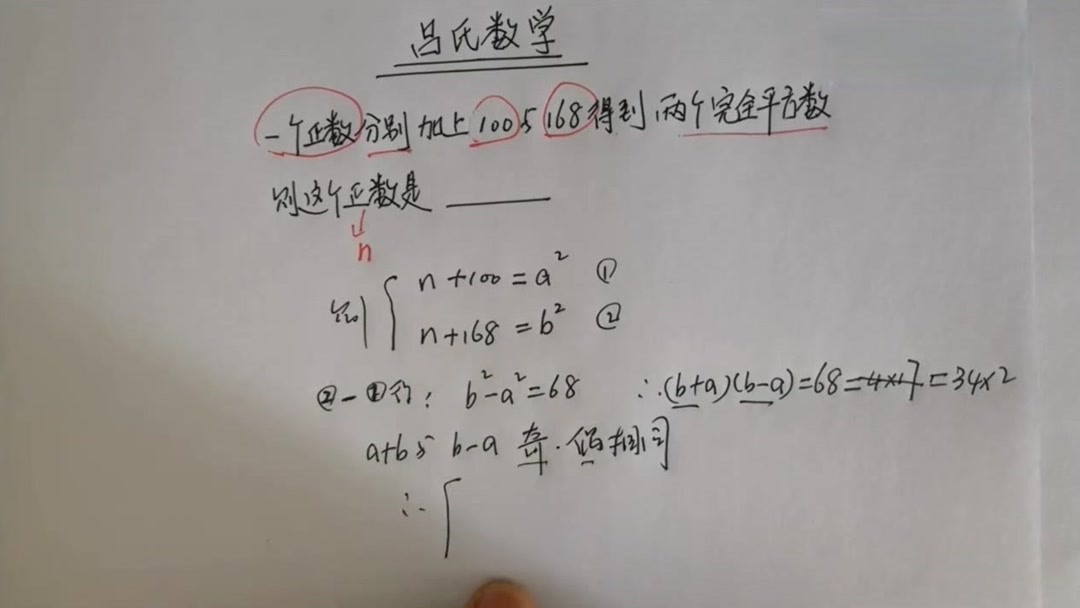 吕氏数学
一个正数分别加上100与168得到两个完全平方数
则这个正数是 ______
n
则 { n+100=a² ①
n+168=b² ②
②-①得: b²-a²=68 ∴(b+a)(b-a)=68=4×17=34×2
a+b与 b-a 奇.偶相同
∴ {